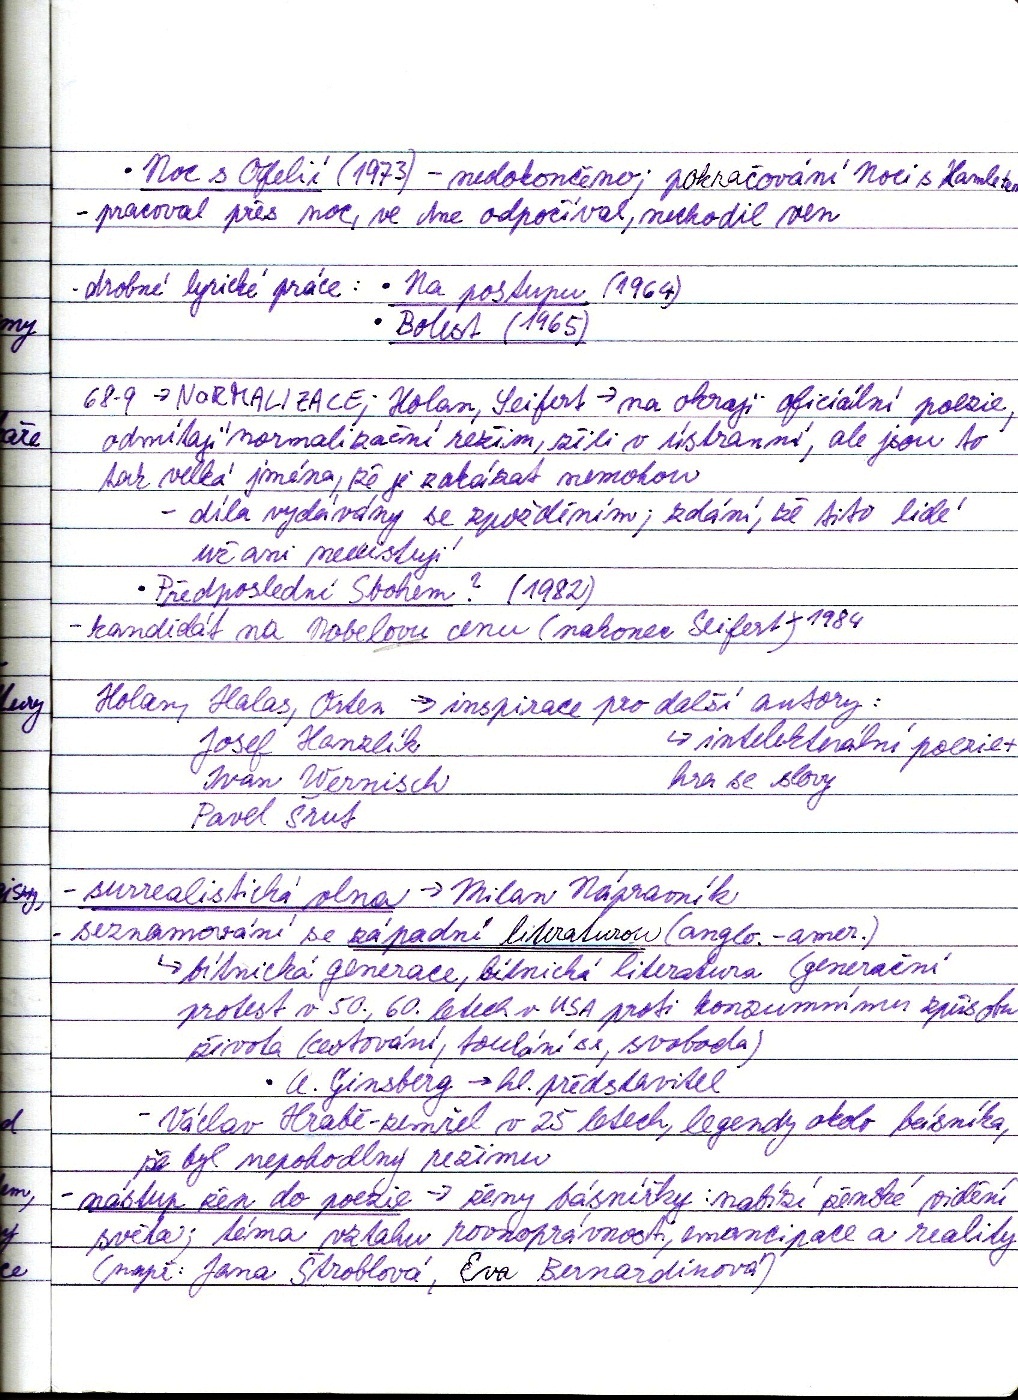 • Noc s Ofelií (1973) - nedokončeno; pokračování Noci s Hamletem
- pracoval přes noc, ve dne odpočíval, nechodil ven
- drobné lyrické práce: • Na postupu (1964)
• Bolest (1965)
my
68-9 → NORMALIZACE; Holan, Seifert → na okraji oficiální poezie,
odmítají normalizační režim, žili v ústranní, ale jsou to
tak velká jména, že je zakázat nemohou
- díla vydávány se zpožděním; zdání, že tito lidé
už ani neexistují
• Předposlední Sbohem? (1982)
- kandidát na Nobelovu cenu (nakonec Seifert) - 1984
Holan, Halas, Orten → inspirace pro další autory:
Josef Hanzlík ↳ intelektuální poezie +
Ivan Wernisch hra se slovy
Pavel Šrut
- surrealistická vlna → Milan Nápravník
- seznamování se západní literaturou (anglo.-amer.)
↳ bítnická generace, bítnická literatura (generační
protest v 50., 60. letech v USA proti konzumnímu způsobu
života (cestování, toulání se, svoboda)
• A. Ginsberg → hl. představitel
- Václav Hrabě - zemřel v 25 letech, legendy okolo básníka,
že byl nepohodlný režimu
- nástup žen do poezie → ženy básnířky: nabízí ženské vidění
světa; téma vztahu rovnoprávnosti, emancipace a reality
(např: Jana Štroblová, Eva Bernardinová)